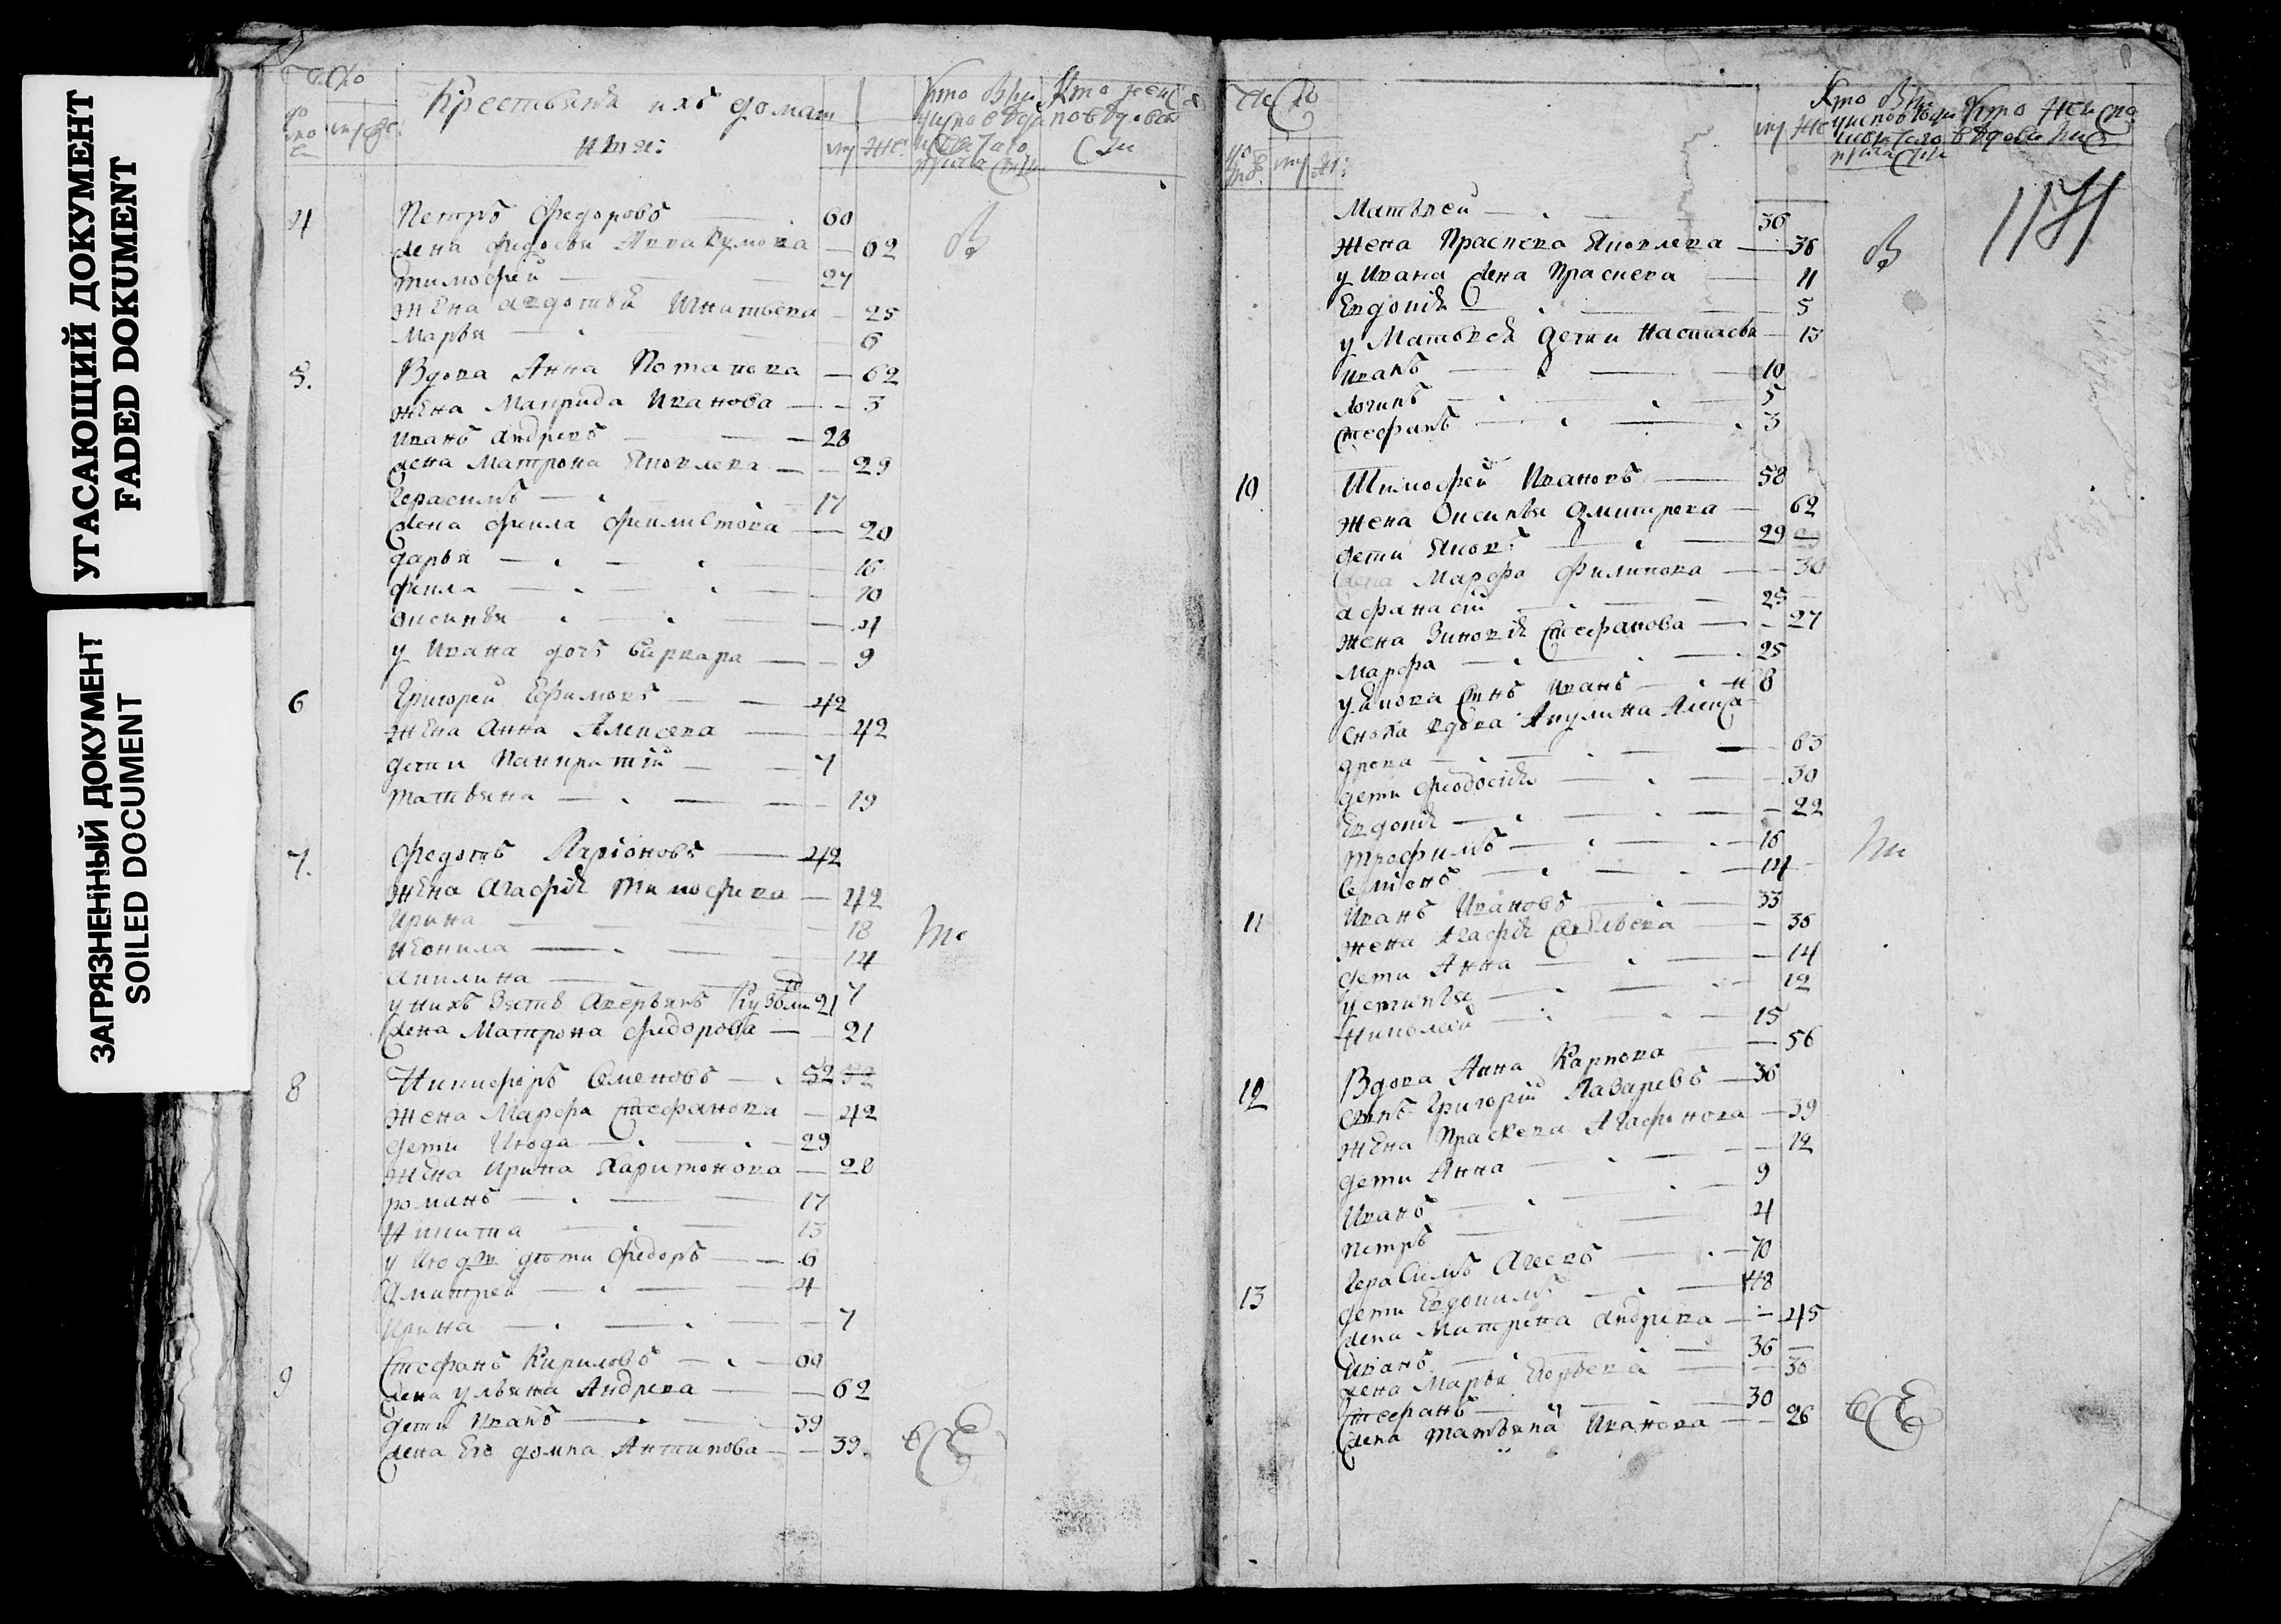 УТАСАЮЩИЙ ДОКУМЕНТ
FADED DOKUMENT
ЗАГРЯЗНЕННЫЙ ДОКУМЕНТ
SOILED DOCUMENT
Число
Крестьяня ихъ домаш
ния:
му же
Кто
Кто
4 Петръ Федоровъ 60
жена Федосья Аввакумова 62
Тимофей 27
жена Авдотья Игнатьева 25
Марья 6
5. Вдова Анна Потапова 62
жена Маврида Иванова 3
Иванъ Андревъ 28
жена Матрона Яковлева 29
Герасимъ 17
жена Фекла Филистова 20
дарья 16
фекла 10
Оксинья 4
у Ивана дочь Варвара 9
6 Григорей Ефимовъ 42
жена Анна Алексева 42
дети Панкратій 7
Татьяна 19
7. Федотъ Ларіоновъ 42
жена Агафія Тимофеева 42
Ирина 18
Неонила 14
Акилина 7
у нихъ Зять Аверьянъ Кузьмин 21
жена Матрона Федорова 21
8 Никифоръ Семеновъ 52 52
жена Марфа Стефанова 42
дети Июда 29
жена Ирина Харитонова 28
романъ 17
Никита 13
у Июды дети Федоръ 6
Дмитрей 4
Ирина 7
9 Стефанъ Кириловъ 60
жена Ульяна Андрева 62
дети Иванъ 39
жена Его домна Антипова 39.
В
Число
му же
Кто
Кто
Матвей 36
жена Праскева Яковлева 36
у Ивана жена Праскева 4
Евдокія 5
у Матвея дети Настасья 13
Иванъ 10
Логинъ 5
Стефанъ 3
10 Тимофей Ивановъ 58
жена Оксинья Дмитрева 62
дети Яковъ 29
жена Марфа Филипова 30
Афанасій 25
жена Зиновія Стефанова 27
Марфа 25
у Якова Сынъ Иванъ 8
Сноха вдова Акулина Алекса-
дрова 63
дети Феодосія 30
Евдокія 22
Трофимъ 16
Семіонъ 14
11 Иванъ Ивановъ 33
жена Агафія Савельева 36
дети Анна 14
Устинья 12
Николай 15
Вдова Анна Карпова 56
12 Сынъ Григорій Лазаревъ 36
жена Праскева Агафонова 39
дети Анна 12
Иванъ 9
Петръ 4
13 Герасимъ Агеевъ 70
дети Евдокимъ 48
жена Матрена Андрева 45
Иванъ 36
жена Марья Егорьева 36
Стефанъ 30
жена Татьяна Иванова 26
В